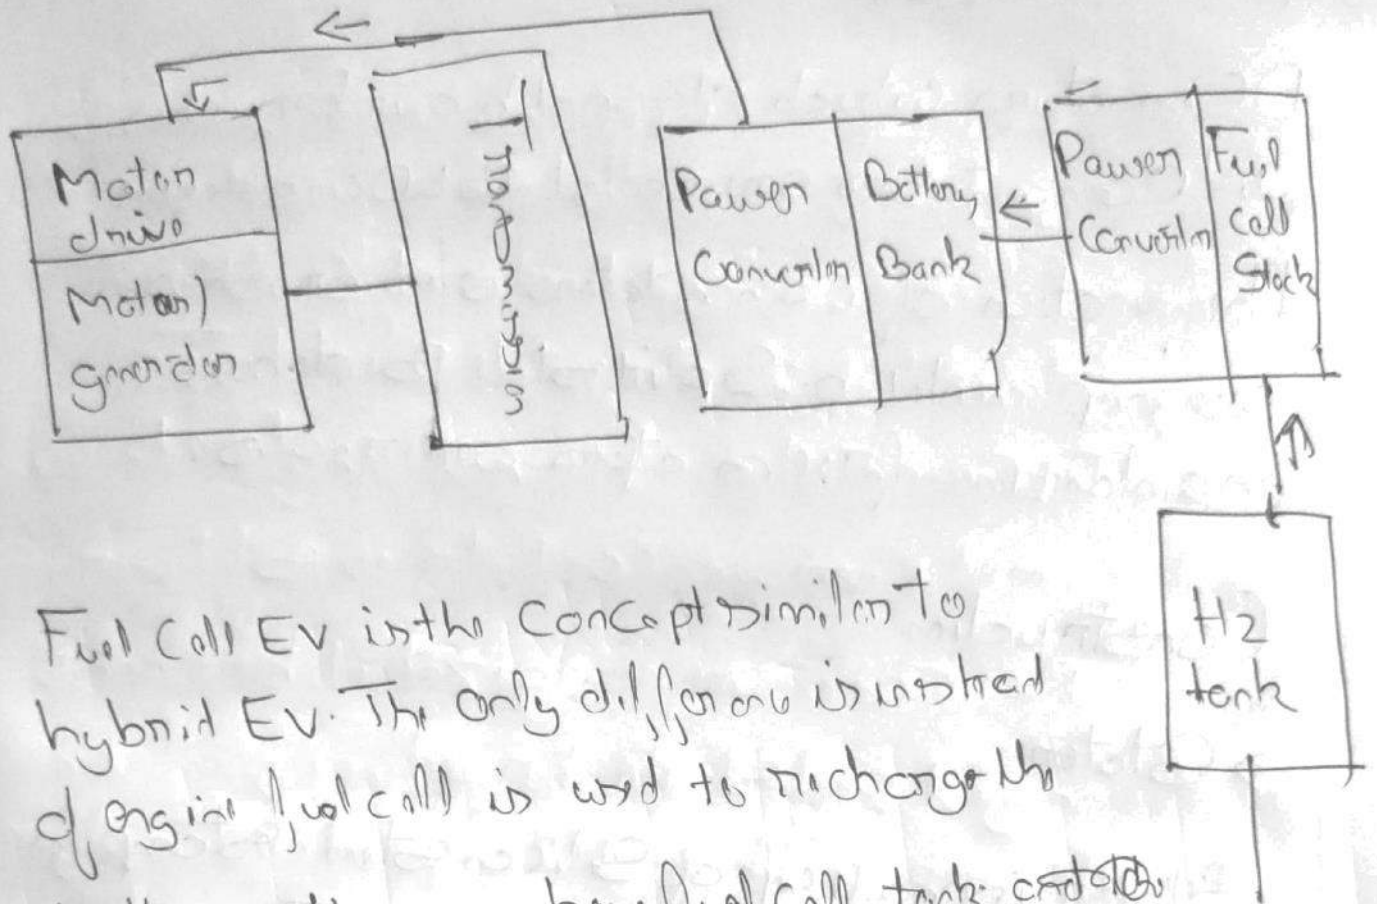 Motor
drive
Motor)
generator
Transmission
Power
Converter
Battery
Bank
Power
Converter
Fuel
Cell
Stack
H2
tank
Fuel Cell EV is the Concept similar to
hybrid EV. The only difference is instead
of engine fuel cell is used to recharge the
fuel cell tank